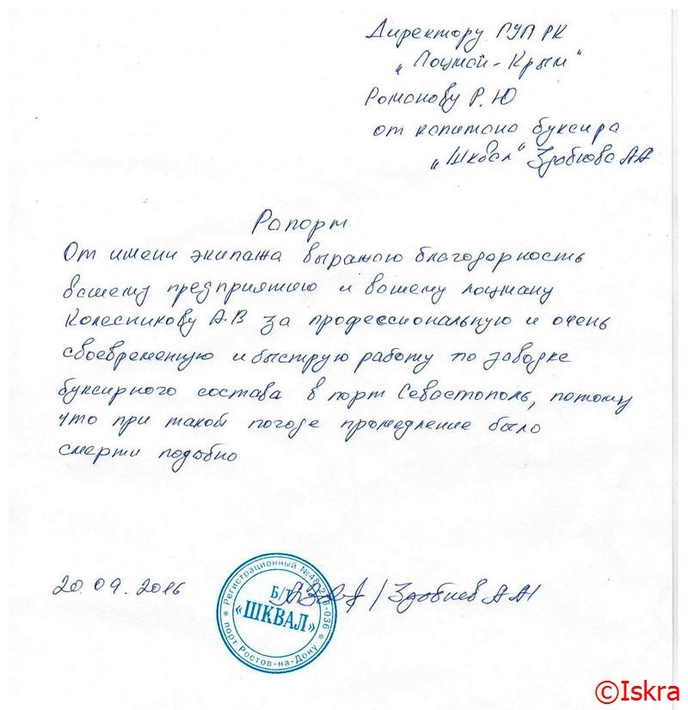 Директору ГУП РК
„Лоцман-Крым"
Романову Р.Ю
от капитана буксира
„Шквал" Здобнова АА
Рапорт
От имени экипажа выражаю благодарность
вашему предприятию и вашему лоцману
Колесникову А.В за профессиональную и очень
своевременную и быструю работу по заводке
буксирного состава в порт Севастополь, потому
что при такой погоде промедление было
смерти подобно
20.09.2016
Регистрационный №
Б/Т
«ШКВАЛ»
порт Ростов-на-Дону
©Iskra